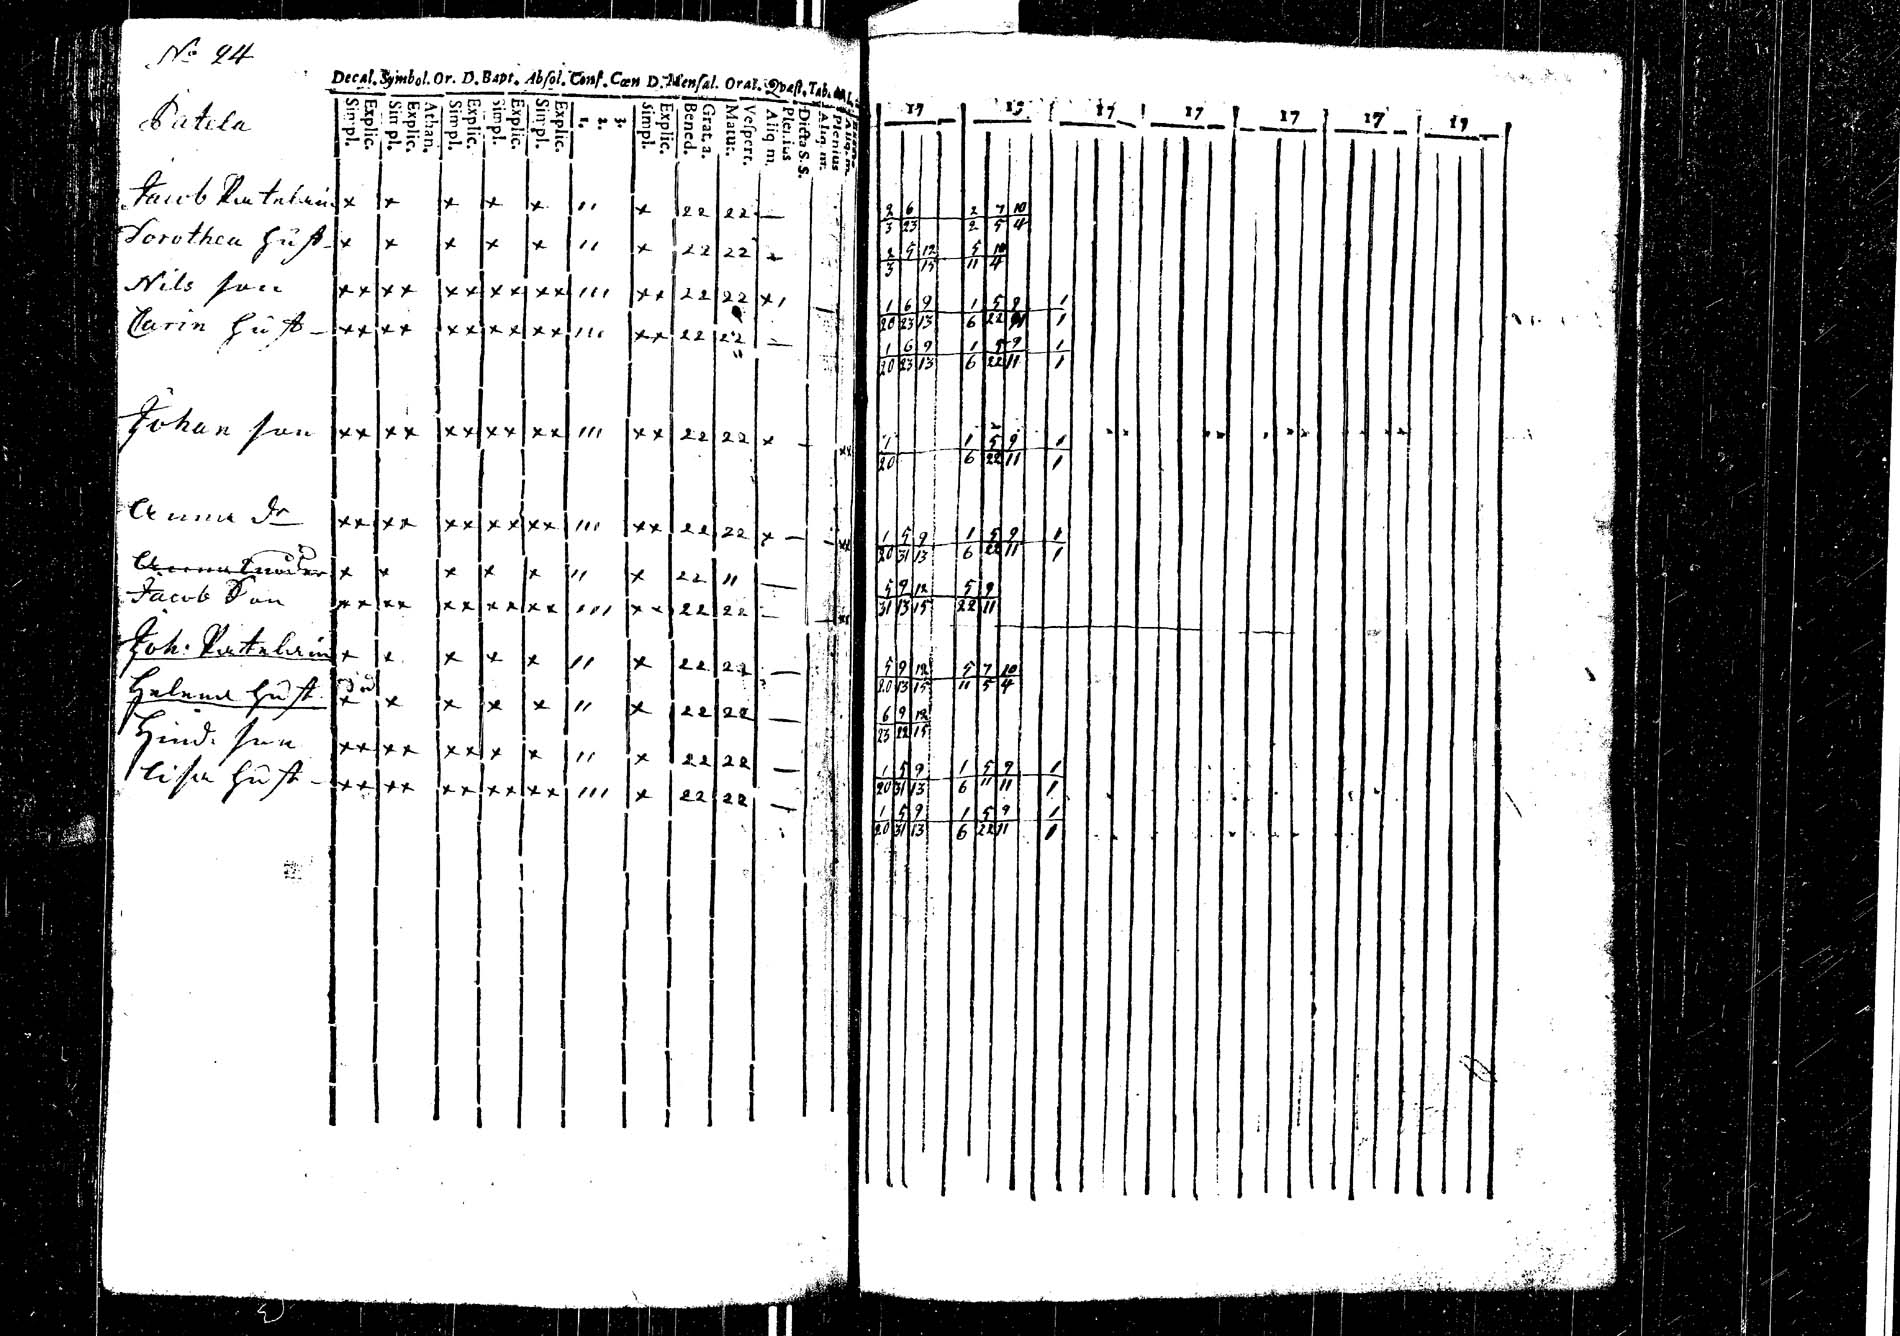 No 24
Decal. Symbol. Or. D. Bapt. Absol. Conf. Cœn D. Mensal. Orat. Qvæst. Tab.
Simpl. Explic. Simpl. Explic. Athan. Simpl. Explic. Simpl. Explic. Simpl. Explic. 1. 2. 3. Simpl. Explic. Bened. Grat. a. Matut. Vespert. Aliq m. Plenius Dicta S. S. Aliq. m. Plenius
17 17 17 17 17 17
Patela
Jacob Patelain x x x x x ,, x 22 22 — 2/3 6/23 2/2 7/5 10/4
Dorothea hust x x x x x ,, x 22 22 x 2/3 5 12/15 5/11 10/4
Nils son xx xx xx xx xx ,,, xx 22 22 x, — 1/20 6/23 9/13 1/6 5/22 9 1/1
Carin hust xx xx xx xx xx ,,, xx 22 22 — 1/20 6/23 9/13 1/6 9/22 9/11 1/1
Johan son xx xx xx xx xx ,,, xx 22 22 x — xx 1/20 1/6 5/22 9/11 1/1
Anna dr xx xx xx xx xx ,,, xx 22 22 x — — xx 1/20 5/31 9/13 1/6 5/22 9/11 1/1
x x x x x ,, x 22 ,, — 5/31 9/13 12/15 5/22 9/11
Jacob Son xx xx xx xx xx ,,, xx 22 22 — — xx
Joh. Patelain x x x x x ,, x 22 22 — 5/20 9/13 12/15 5/11 7/5 10/4
Helena hust x x x x x ,, x 22 22 — 6/23 9/22 12/15
Hind. son xx xx xx x x ,, x 22 22 — 1/20 5/31 9/13 1/6 5/11 9/11 1/1
Lisa hust xx xx xx xx xx ,,, x 22 22 — 1/20 5/31 9/13 1/6 5/22 9/11 1/1